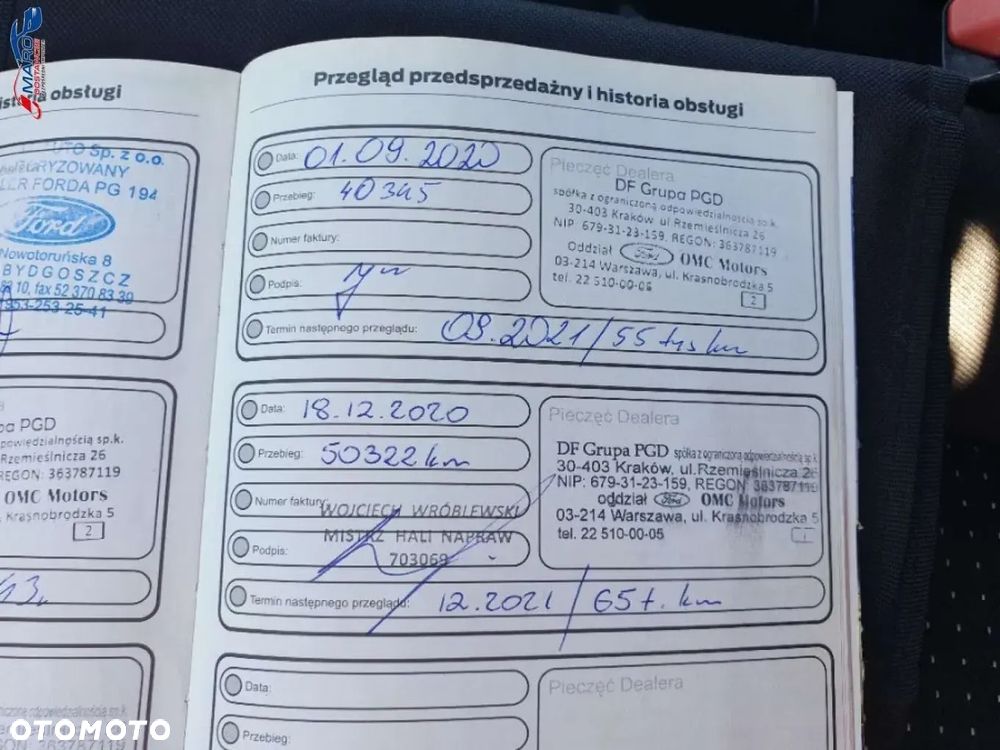 MARO
DOSTAWCZE
istoria obsługi
UTO Sp. z o.o.
ORYZOWANY
LER FORDA PG 194
Ford
Nowotoruńska 8
BYDGOSZCZ
83 10, fax 52 370 83 39
953-253-25-41
pa PGD
powiedzialnością sp.k.
Rzemieślnicza 26
REGON: 363787119
OMC Motors
Krasnobrodzka 5
2
Przegląd przedsprzedażny i historia obsługi
Data: 01.09.2020
Przebieg: 40345
Numer faktury:
Podpis:
Termin następnego przeglądu: 09.2021/55 tys km
Pieczęć Dealera
DF Grupa PGD
spółka z ograniczoną odpowiedzialnością sp.k.
30-403 Kraków ul Rzemieślnicza 26
NIP 679-31-23-159, REGON: 363787119
Oddział Ford OMC Motors
03-214 Warszawa, ul. Krasnobrodzka 5
tel. 22 510-00-05
2
Data: 18.12.2020
Przebieg: 50322 km
Numer faktury:
WOJCIECH WRÓBLEWSKI
MISTRZ HALI NAPRAW
Podpis: 703069
Termin następnego przeglądu: 12.2021 / 65 t. km
Pieczęć Dealera
DF Grupa PGD spółka z ograniczoną odpowiedzialnością sp.k.
30-403 Kraków, ul.Rzemieślnicza 26
NIP: 679-31-23-159, REGON: 363787119
oddział Ford OMC Motors
03-214 Warszawa, ul. Krasnobrodzka 5
tel. 22 510-00-05
Data:
Przebieg:
Pieczęć Dealera
OTOMOTO